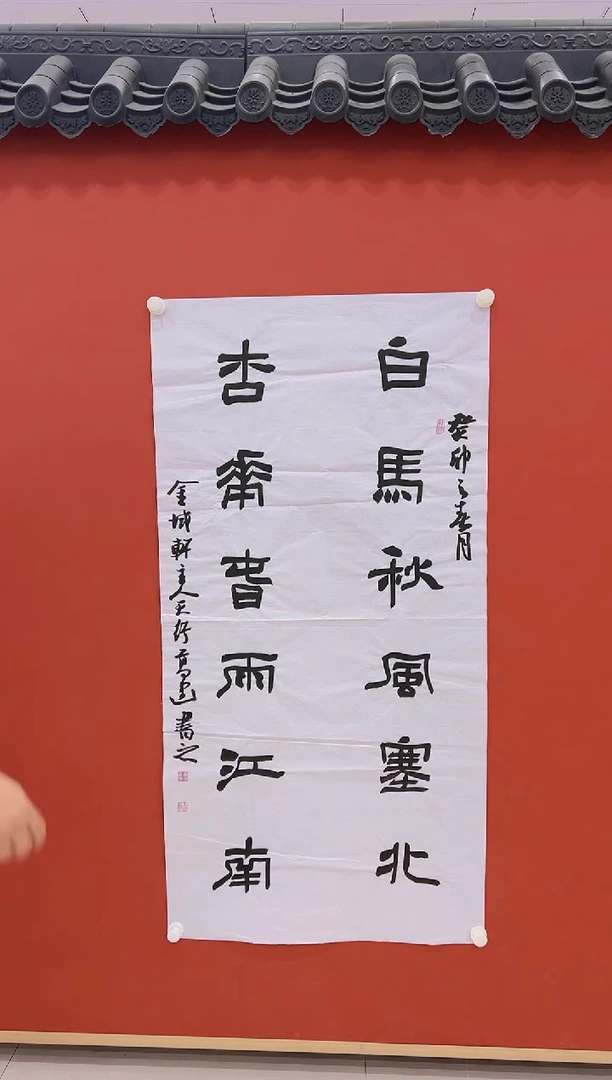 癸卯之春月
白馬秋風塞北
杏華旾雨江南
金城軒主人書之